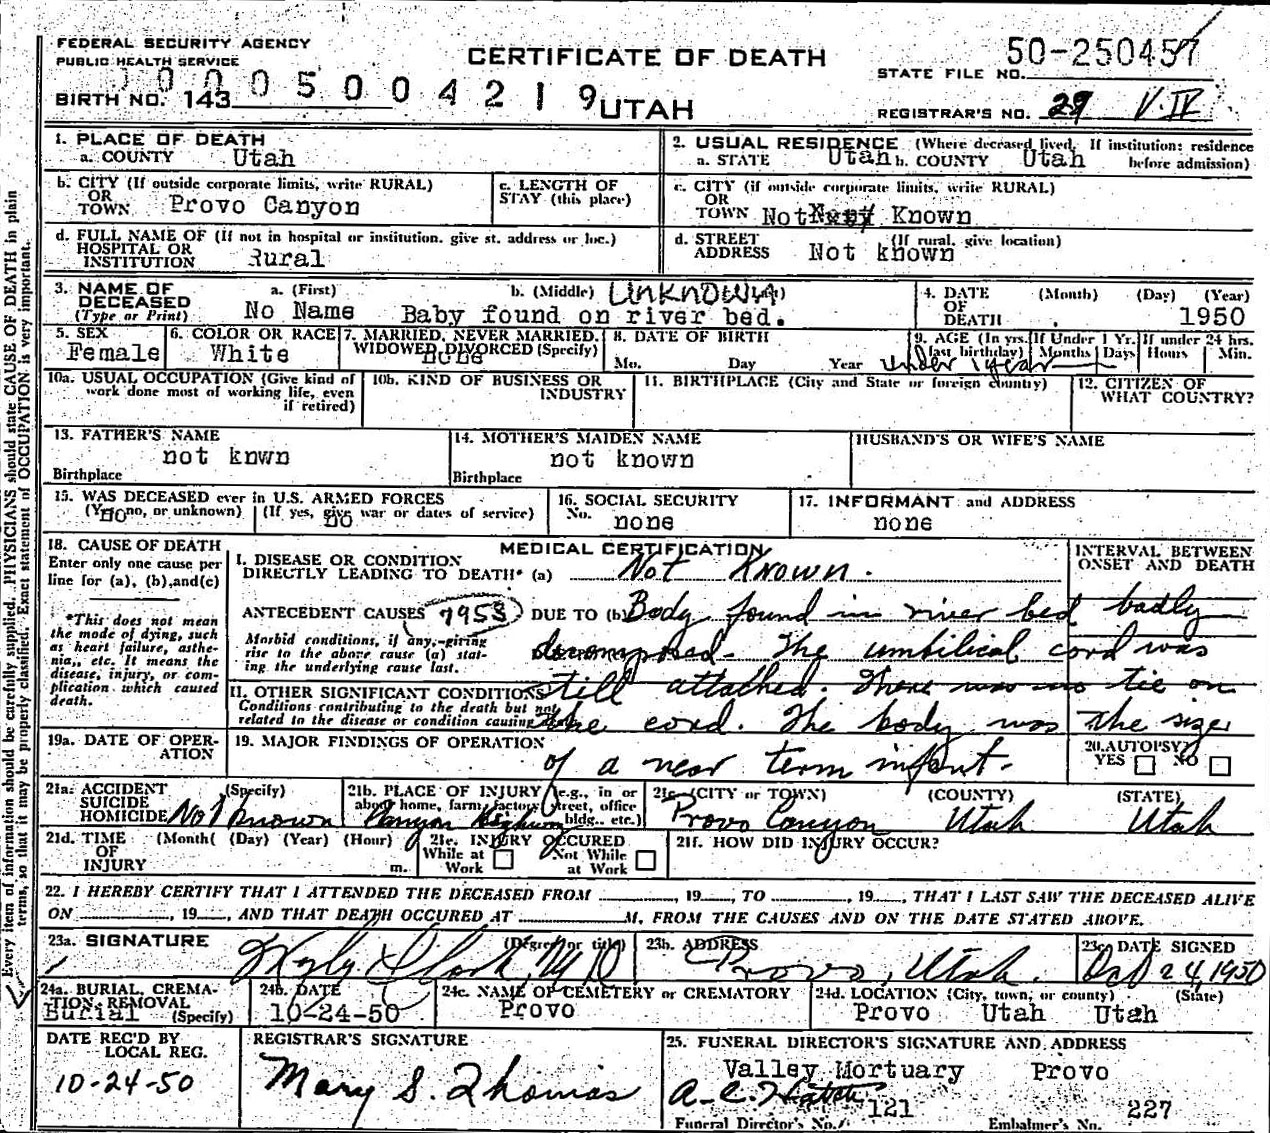 FEDERAL SECURITY AGENCY
PUBLIC HEALTH SERVICE
CERTIFICATE OF DEATH
50-250457
STATE FILE NO.
BIRTH NO. 143
0005004219
UTAH
REGISTRAR'S NO. 29 V.IV
1. PLACE OF DEATH
a. COUNTY Utah
2. USUAL RESIDENCE (Where deceased lived. If institution: residence before admission)
a. STATE Utah b. COUNTY Utah
b. CITY (If outside corporate limits, write RURAL)
OR
TOWN Provo Canyon
c. LENGTH OF
STAY (this place)
c. CITY (if outside corporate limits, write RURAL)
OR
TOWN Not Known
d. FULL NAME OF (If not in hospital or institution. give st. address or loc.)
HOSPITAL OR
INSTITUTION Rural
d. STREET (If rural, give location)
ADDRESS Not known
3. NAME OF
DECEASED
(Type or Print)
a. (First) b. (Middle) UNKNOWN
No Name Baby found on river bed.
4. DATE (Month) (Day) (Year)
OF
DEATH 1950
5. SEX
Female
6. COLOR OR RACE
White
7. MARRIED, NEVER MARRIED.
WIDOWED DIVORCED (Specify)
none
8. DATE OF BIRTH
Mo. Day Year
9. AGE (In yrs. last birthday) If Under 1 Yr. If under 24 hrs.
Months Days Hours Min.
under 1 year
10a. USUAL OCCUPATION (Give kind of
work done most of working life, even
if retired)
10b. KIND OF BUSINESS OR
INDUSTRY
11. BIRTHPLACE (City and State or foreign country)
12. CITIZEN OF
WHAT COUNTRY?
13. FATHER'S NAME
not knwn
Birthplace
14. MOTHER'S MAIDEN NAME
not known
Birthplace
HUSBAND'S OR WIFE'S NAME
15. WAS DECEASED ever in U.S. ARMED FORCES
(Yes, no, or unknown) (If yes, give war or dates of service)
no no
16. SOCIAL SECURITY
No. none
17. INFORMANT and ADDRESS
none
18. CAUSE OF DEATH
Enter only one cause per
line for (a), (b),and(c)
*This does not mean
the mode of dying, such
as heart failure, asthe-
nia,, etc. It means the
disease, injury, or com-
plication which caused
death.
MEDICAL CERTIFICATION
I. DISEASE OR CONDITION
DIRECTLY LEADING TO DEATH* (a) Not Known.
INTERVAL BETWEEN
ONSET AND DEATH
ANTECEDENT CAUSES 7953 DUE TO (b) Body found in river bed badly
Morbid conditions, if any, giving
rise to the above cause (a) stat-
ing the underlying cause last.
decomposed. The umbilical cord was
still attached. There was no tie on
II. OTHER SIGNIFICANT CONDITIONS
Conditions contributing to the death but not
related to the disease or condition causing death.
the cord. The body was the size
19a. DATE OF OPER-
ATION
19. MAJOR FINDINGS OF OPERATION
of a near term infant.
20. AUTOPSY?
YES NO
21a. ACCIDENT (Specify)
SUICIDE
HOMICIDE Not known
21b. PLACE OF INJURY (e.g., in or
about home, farm, factory, street, office
bldg., etc.)
Canyon Highway
21c. (CITY or TOWN) (COUNTY) (STATE)
Provo Canyon Utah Utah
21d. TIME (Month( (Day) (Year) (Hour)
OF
INJURY m.
21e. INJURY OCCURED
While at Work Not While at Work
21f. HOW DID INJURY OCCUR?
22. I HEREBY CERTIFY THAT I ATTENDED THE DECEASED FROM , 19 , TO , 19 , THAT I LAST SAW THE DECEASED ALIVE
ON , 19 , AND THAT DEATH OCCURED AT M, FROM THE CAUSES AND ON THE DATE STATED ABOVE.
23a. SIGNATURE (Degree or title)
Clark MD
23b. ADDRESS
Provo, Utah.
23c. DATE SIGNED
Oct 24, 1950
24a. BURIAL, CREMA-
TION, REMOVAL
Burial (Specify)
24b. DATE
10-24-50
24c. NAME OF CEMETERY or CREMATORY
Provo
24d. LOCATION (City, town, or county) (State)
Provo Utah Utah
DATE REC'D BY
LOCAL REG.
10-24-50
REGISTRAR'S SIGNATURE
Mary S. Thomas
25. FUNERAL DIRECTOR'S SIGNATURE AND ADDRESS
Valley Mortuary Provo
A. C. Hatch
Funeral Director's No. 121 Embalmer's No. 227
Every item of information should be carefully supplied. PHYSICIANS should state CAUSE OF DEATH in plain
terms, so that it may be properly classified. Exact statement of OCCUPATION is very important.